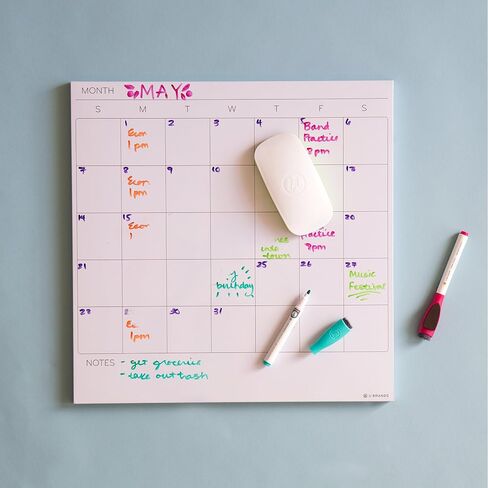 MONTH MAY
S M T W T F S
1 2 3 4 5 6
Econ
1pm
Band
Practice
8pm
7 8 9 10 13
Econ
1pm
14 15 20
Econ
1
town
Practice
8pm
21 25 26 27
my
birthday
Music
Festival
30 31
1pm
NOTES
- get groceries
- take out trash
U BRANDS